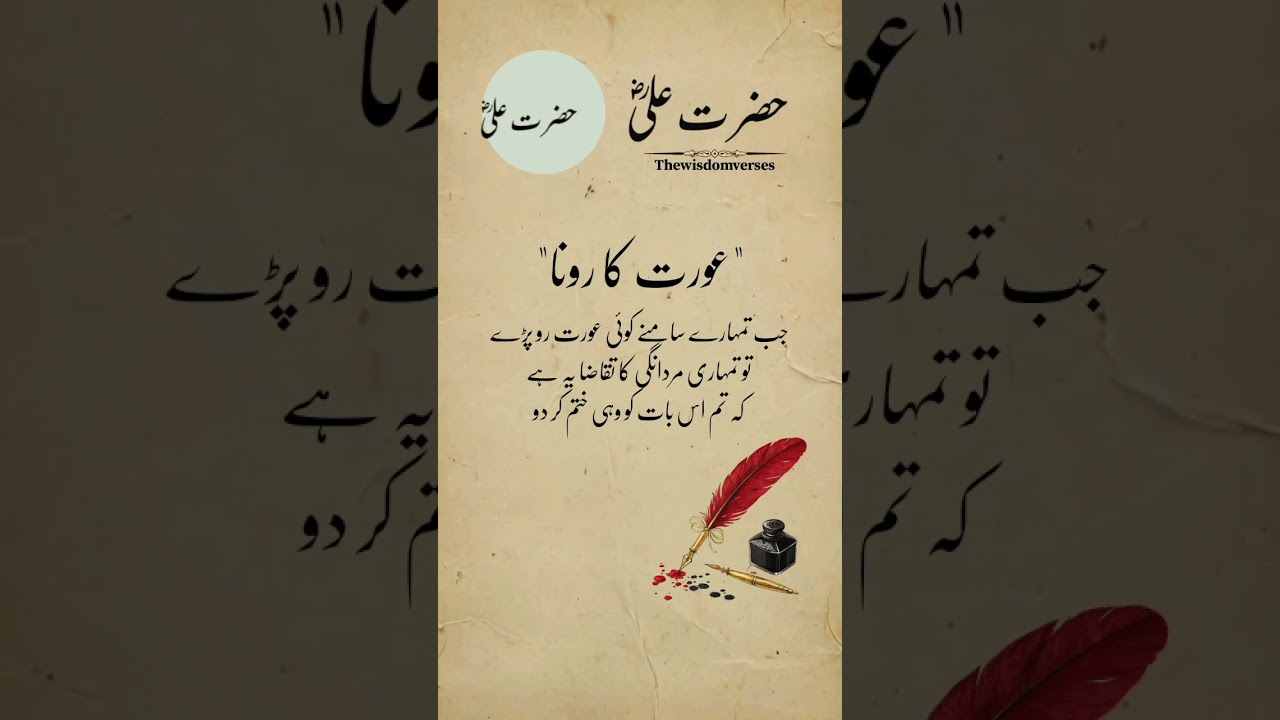 حضرت علیؓ
حضرت علیؓ
Thewisdomverses
"عورت کا رونا"
جب تمہارے سامنے کوئی عورت رو پڑے
تو تمہاری مردانگی کا تقاضا یہ ہے
کہ تم اس بات کو وہی ختم کر دو